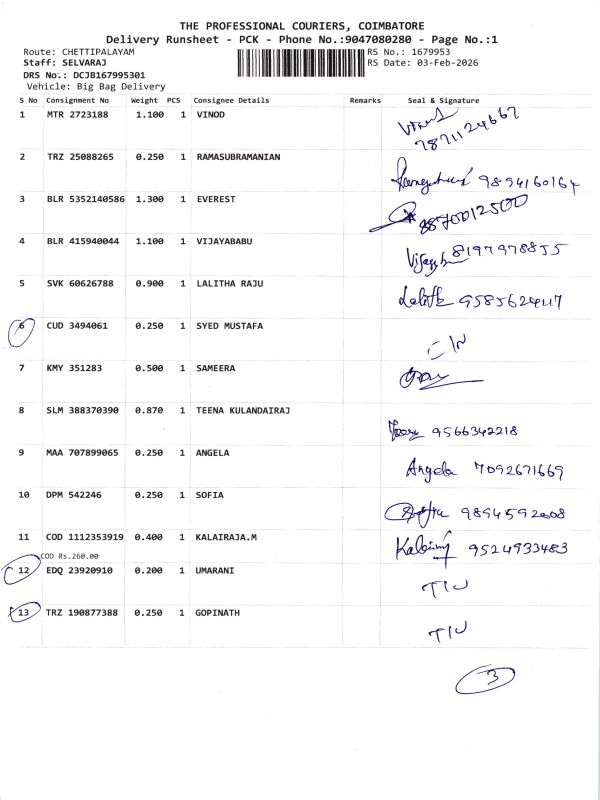 THE PROFESSIONAL COURIERS, COIMBATORE
Delivery Runsheet - PCK - Phone No.:9047080280 - Page No.:1
Route: CHETTIPALAYAM RS No.: 1679953
Staff: SELVARAJ RS Date: 03-Feb-2026
DRS No.: DCJB167995301
Vehicle: Big Bag Delivery
S No Consignment No Weight PCS Consignee Details Remarks Seal & Signature
1 MTR 2723188 1.100 1 VINOD
7871124667
2 TRZ 25088265 0.250 1 RAMASUBRAMANIAN
9894160164
3 BLR 5352140586 1.300 1 EVEREST
8870012500
4 BLR 415940044 1.100 1 VIJAYABABU
8197978855
5 SVK 60626788 0.900 1 LALITHA RAJU
Lalith
6 CUD 3494061 0.250 1 SYED MUSTAFA
7 KMY 351283 0.500 1 SAMEERA
8 SLM 388370390 0.870 1 TEENA KULANDAIRAJ
9566342218
9 MAA 707899065 0.250 1 ANGELA
Angela 7092671669
10 DPM 542246 0.250 1 SOFIA
9894592008
11 COD 1112353919 0.400 1 KALAIRAJA.M
9524933483
COD Rs.260.00
12 EDQ 23920910 0.200 1 UMARANI
13 TRZ 190877388 0.250 1 GOPINATH
3